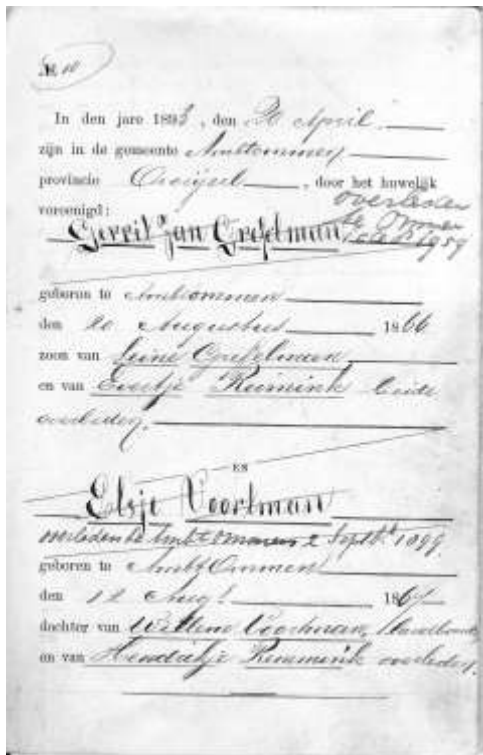 №. 10
In den jare 1893, den 20 April.
zijn in de gemeente Ambtommen
provincie Overijsel, door het huwelijk
vereenigd:
overleden
te Ommen
1959
Gerrit Jan
geboren te Ambtommen
den 20 Augustus 1866
zoon van
en van Evertje Remmink beide
overleden.
EN
Elsje Voortman
overleden te Ambt Ommen 2 Septb. 1899.
geboren te Ambt Ommen
den 12 Aug. 1864
dochter van Willem Voortman,
en van Hendrikje Remmink overleden.